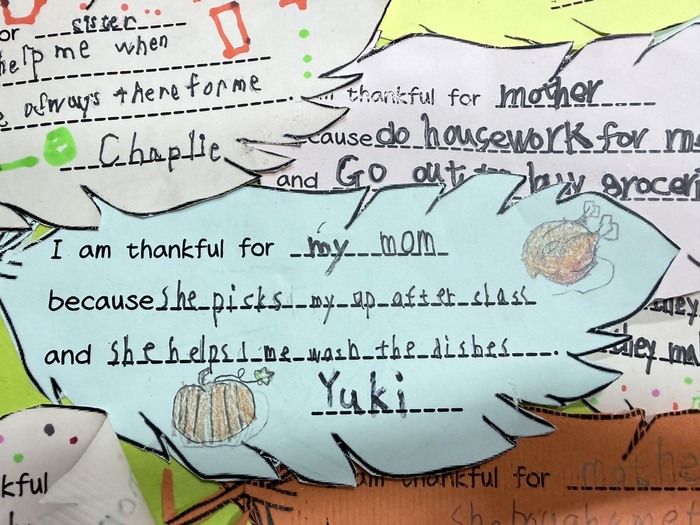 or sister
help me when
always there for me
Chaplie
thankful for mother
cause do housework for me
and Go out to buy groceri
I am thankful for my mom
because she picks my up after class
and she helps me wash the dishes.
Yuki
they
they ma
kful
am thankful for mothe